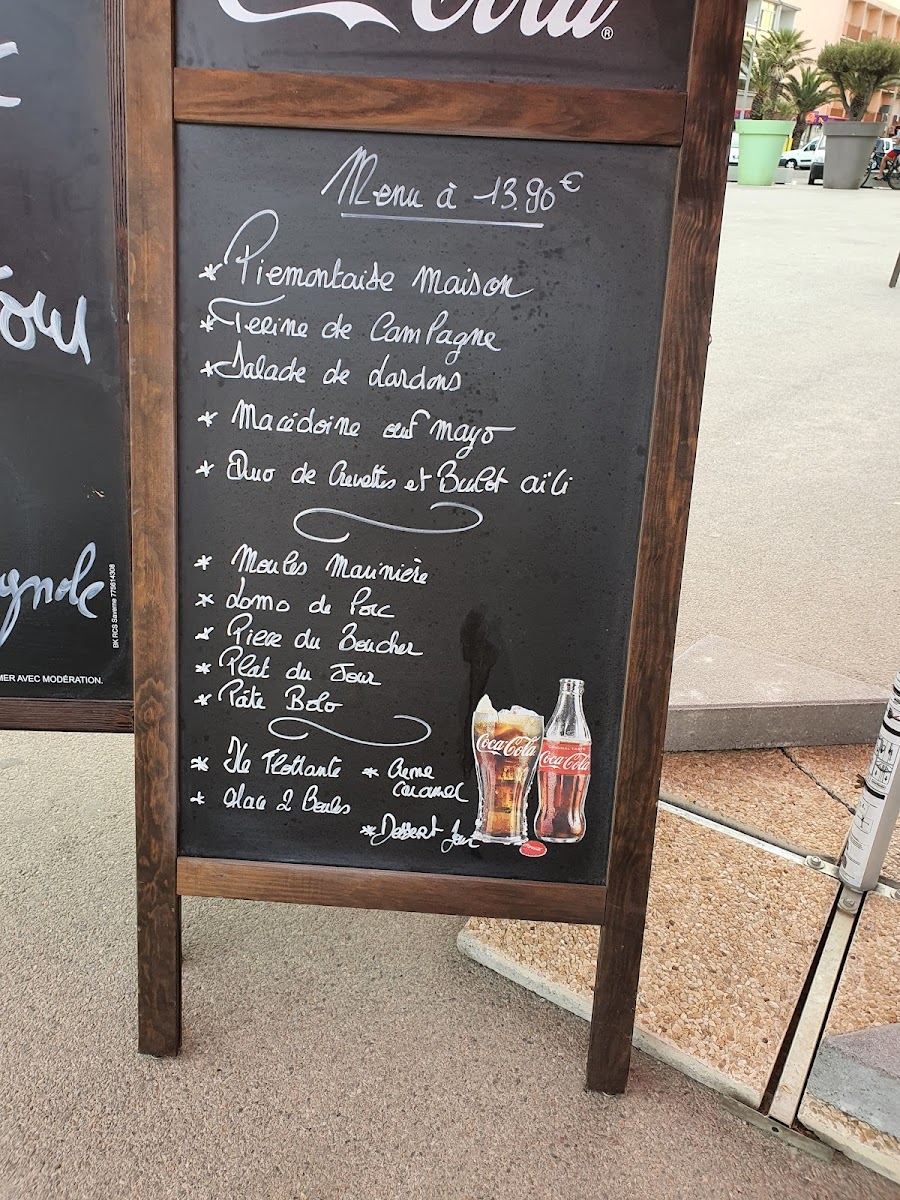 Coca-Cola®
Menu à 13.90€
* Piemontaise maison
* Terine de Campagne
* Salade de Lardons
* Macédoine œuf mayo
* Duo de Crevettes et Bulot aïli
* Moules Marinière
* Lomo de Porc
* Piere du Boucher
* Plat du Jour
* Pâte Bolo
* Ile Flottante
* Creme Caramel
* Glace 2 Boules
* Dessert Jour
Coca-Cola
ORIGINAL TASTE
Coca-Cola
BK RCS Saverne 775614308
MER AVEC MODÉRATION.